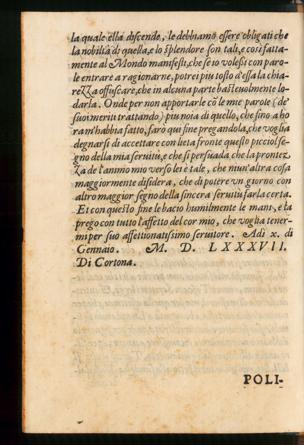 la quale ella discende, le debbiamo essere obligati che
la nobiltà di quella, e lo splendore son tali, e così fatta-
mente al Mondo manifesti, che se io volessi con paro-
le entrare a ragionarne, potrei piu tosto d'essa la chia-
rezza offuscare, che in alcuna parte basteuolmente lo-
darla. Onde per non apportarle cō le mie parole (de'
suoi meriti trattando) piu noia di quello, che sino a ho
ra m'habbia fatto, farò qui fine pregandola, che voglia
degnarsi di accettare con lieta fronte questo picciol se-
gno della mia seruitu, e che si persuada che la prontez
za de l'animo mio verso lei è tale, che niun'altra cosa
maggiormente disidera, che di potere vn giorno con
altro maggior segno della sincera seruitu farla certa.
Et con questo fine le bacio humilmente le mani, e la
prego con tutto l'affetto del cor mio, che voglia tener-
mi per suo affettionatissimo seruitore. Adi x. di
Gennaio. M. D. LXXXVII.
Di Cortona.
POLI-